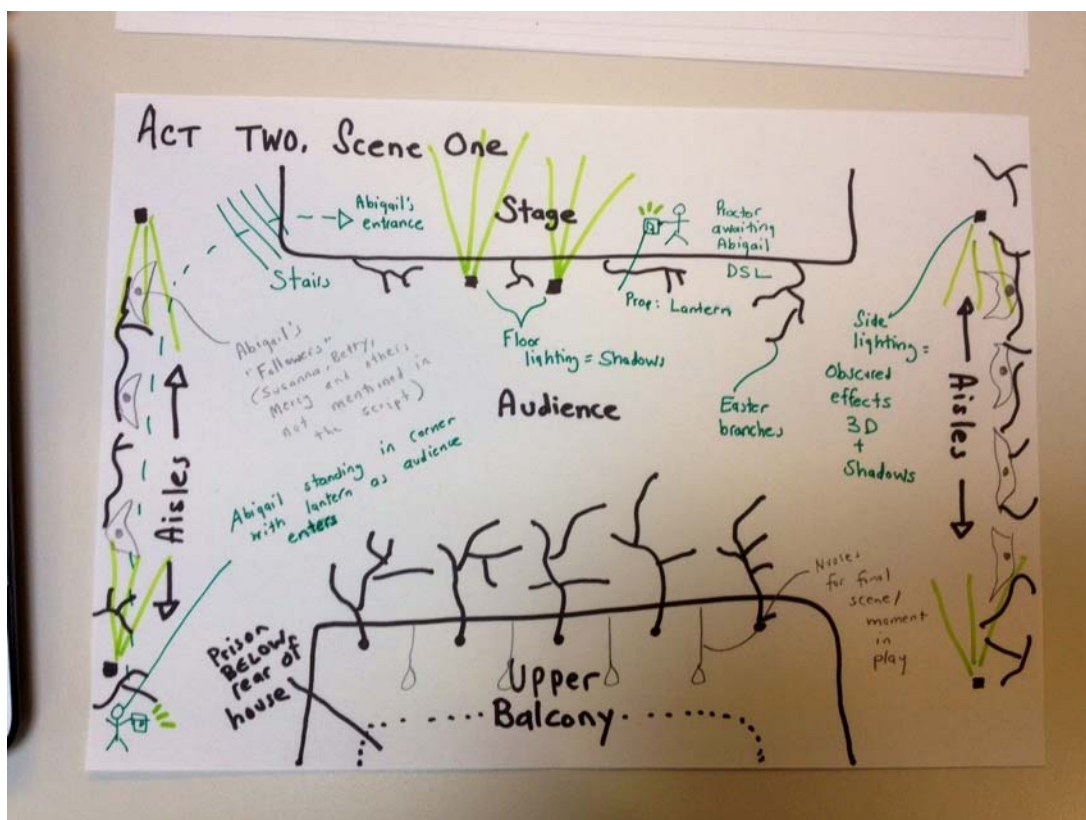 ACT TWO, Scene One
Abigail's
entrance
Stage
Proctor
awaiting
Abigail
DSL
Stairs
Prop: Lantern
Floor
lighting = Shadows
Side
lighting =
Obscured
effects
3D
+
Shadows
Abigail's
"Followers"
(Susanna, Betty,
Mercy and others
not mentioned in
the script)
Audience
Easter
branches
Aisles
Aisles
Abigail standing in corner
with lantern as audience
enters
Nooses
for final
scene/
moment
in
play
Prison
BELOW
rear of
house
Upper
Balcony